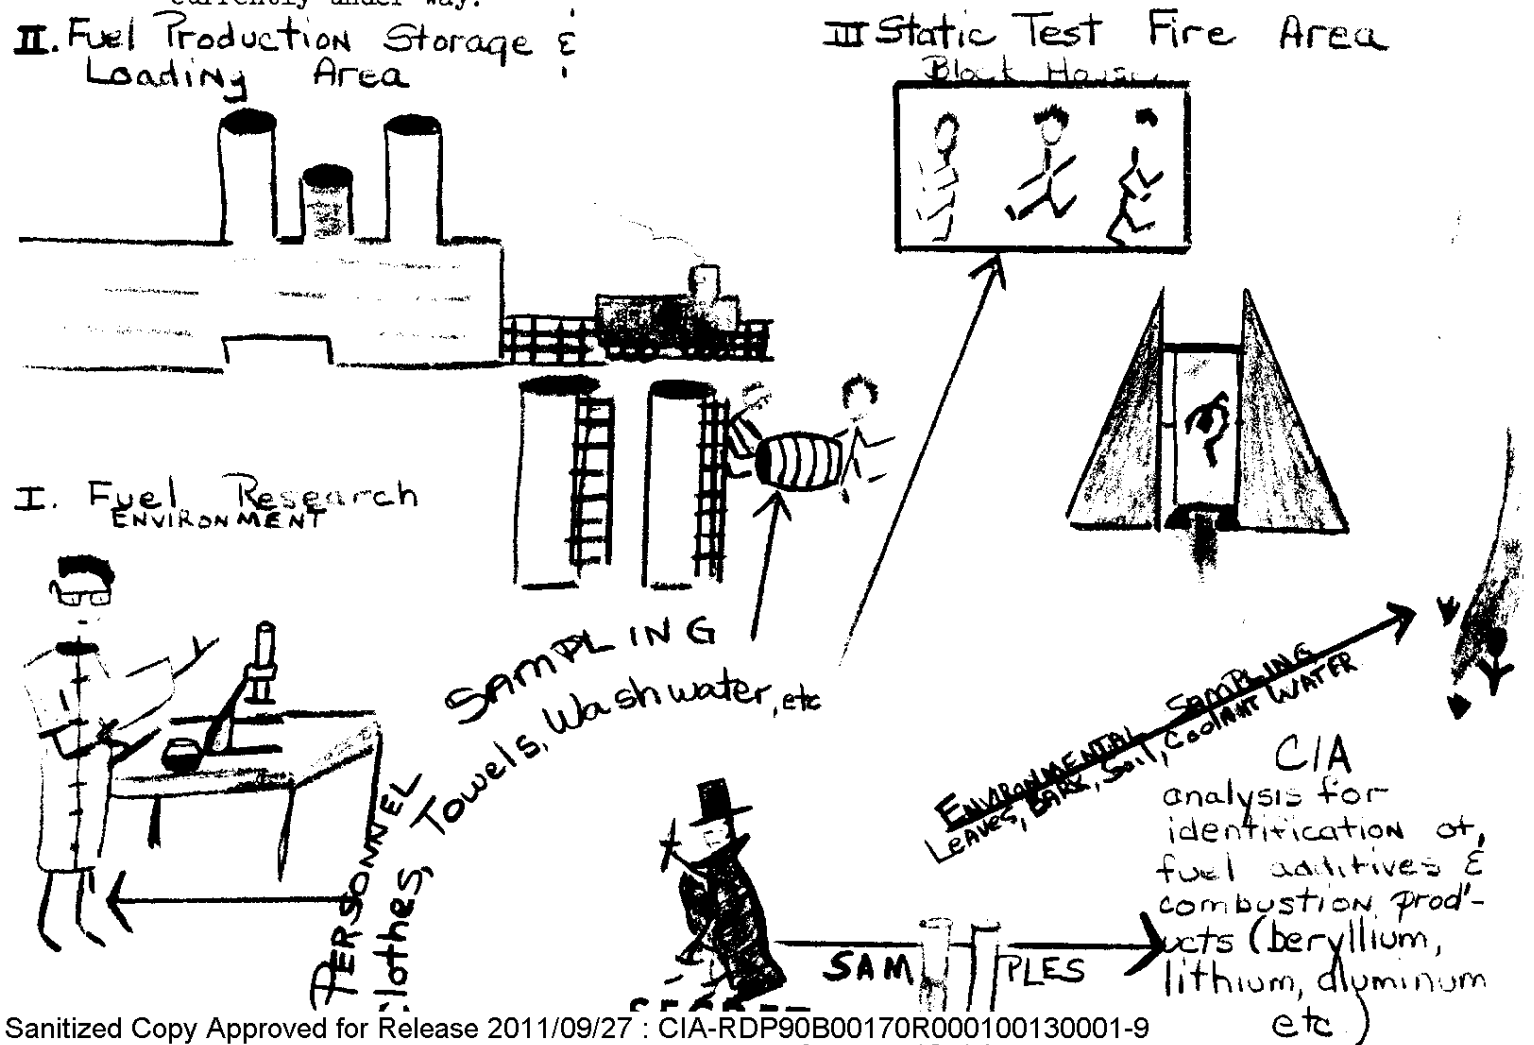 currently under way.
II. Fuel Production Storage &
Loading Area
III Static Test Fire Area
Block House
I. Fuel Research
ENVIRONMENT
PERSONNEL SAMPLING
Clothes, Towels, Washwater, etc
ENVIRONMENTAL SAMPLING
Leaves, Bark, Soil, Coolant Water
SAM PLES
CIA
analysis for
identification of,
fuel additives &
combustion prod'-
ucts (beryllium,
lithium, aluminum
etc.)
SECRET
Sanitized Copy Approved for Release 2011/09/27 : CIA-RDP90B00170R000100130001-9